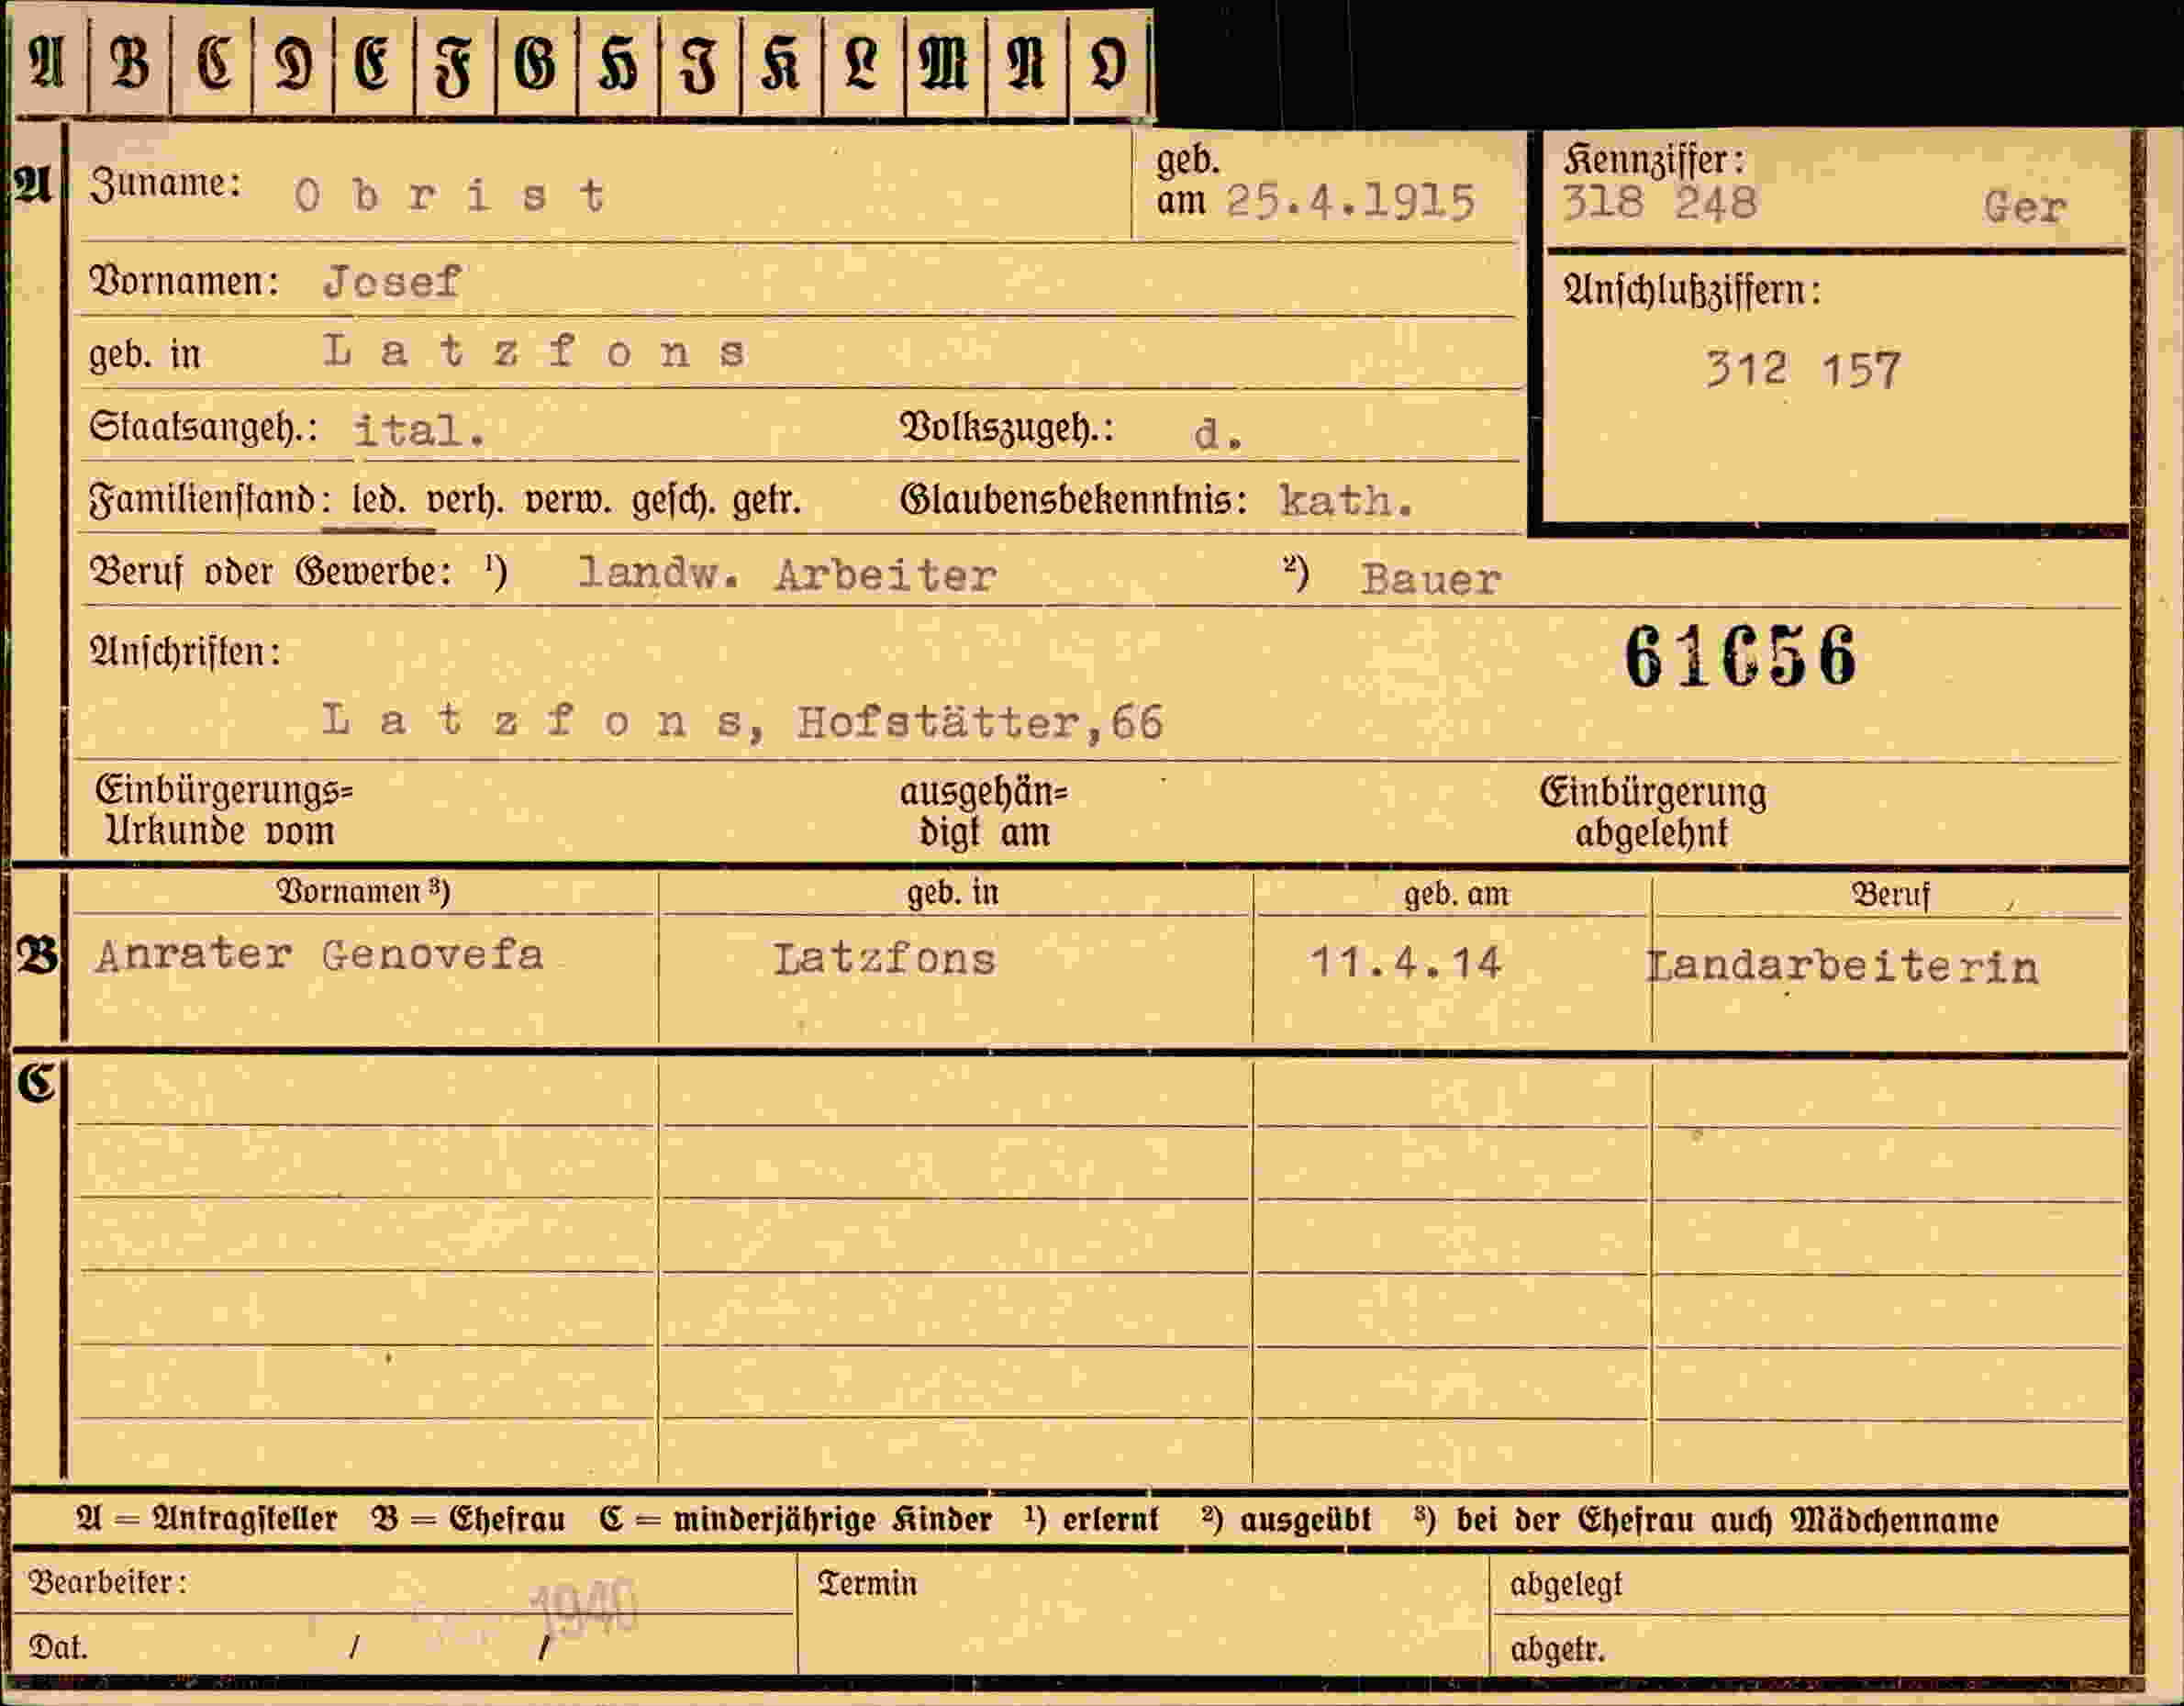 A B C D E F G H I K L M N O
A Zuname: Obrist geb. am 25.4.1915 Kennziffer: 318 248 Ger
Vornamen: Josef Anschlußziffern:
geb. in Latzfons 312 157
Staatsangeh.: ital. Volkszugeh.: d.
Familienstand: led. verh. verw. gesch. getr. Glaubensbekenntnis: kath.
Beruf oder Gewerbe: ¹) landw. Arbeiter ²) Bauer
Anschriften: 61656
Latzfons, Hofstätter,66
Einbürgerungs= ausgehän= Einbürgerung
Urkunde vom digt am abgelehnt
Vornamen ³) geb. in geb. am Beruf
B Anrater Genovefa Latzfons 11.4.14 Landarbeiterin
C
A = Antragsteller B = Ehefrau C = minderjährige Kinder ¹) erlernt ²) ausgeübt ³) bei der Ehefrau auch Mädchenname
Bearbeiter: 1940 Termin abgelegt
Dat. / / abgetr.